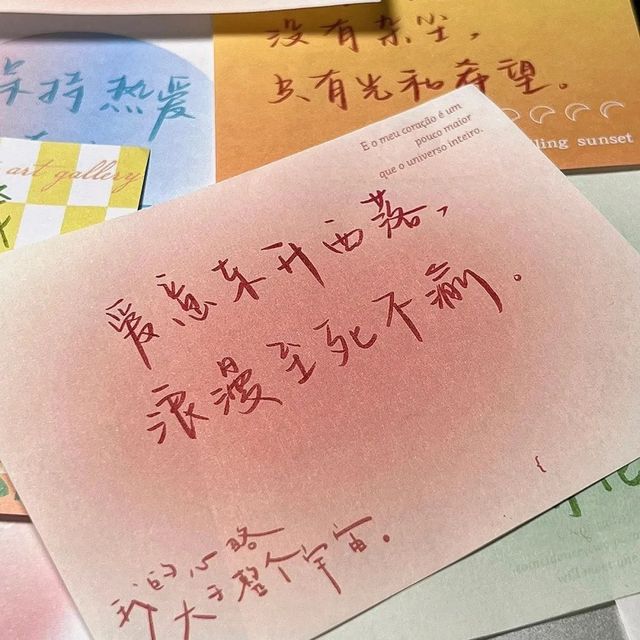 没有杂尘,
只有光和希望。
保持热爱
art gallery
ling sunset
E o meu coração é um
pouco maior
que o universo inteiro.
爱意东升西落,
浪漫至死不渝.
我的心略
大于整个宇宙。